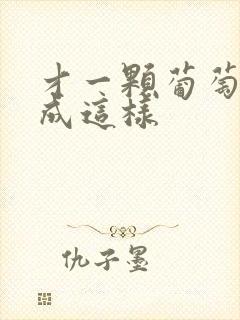 才一顆葡萄
成這樣
仇子墨